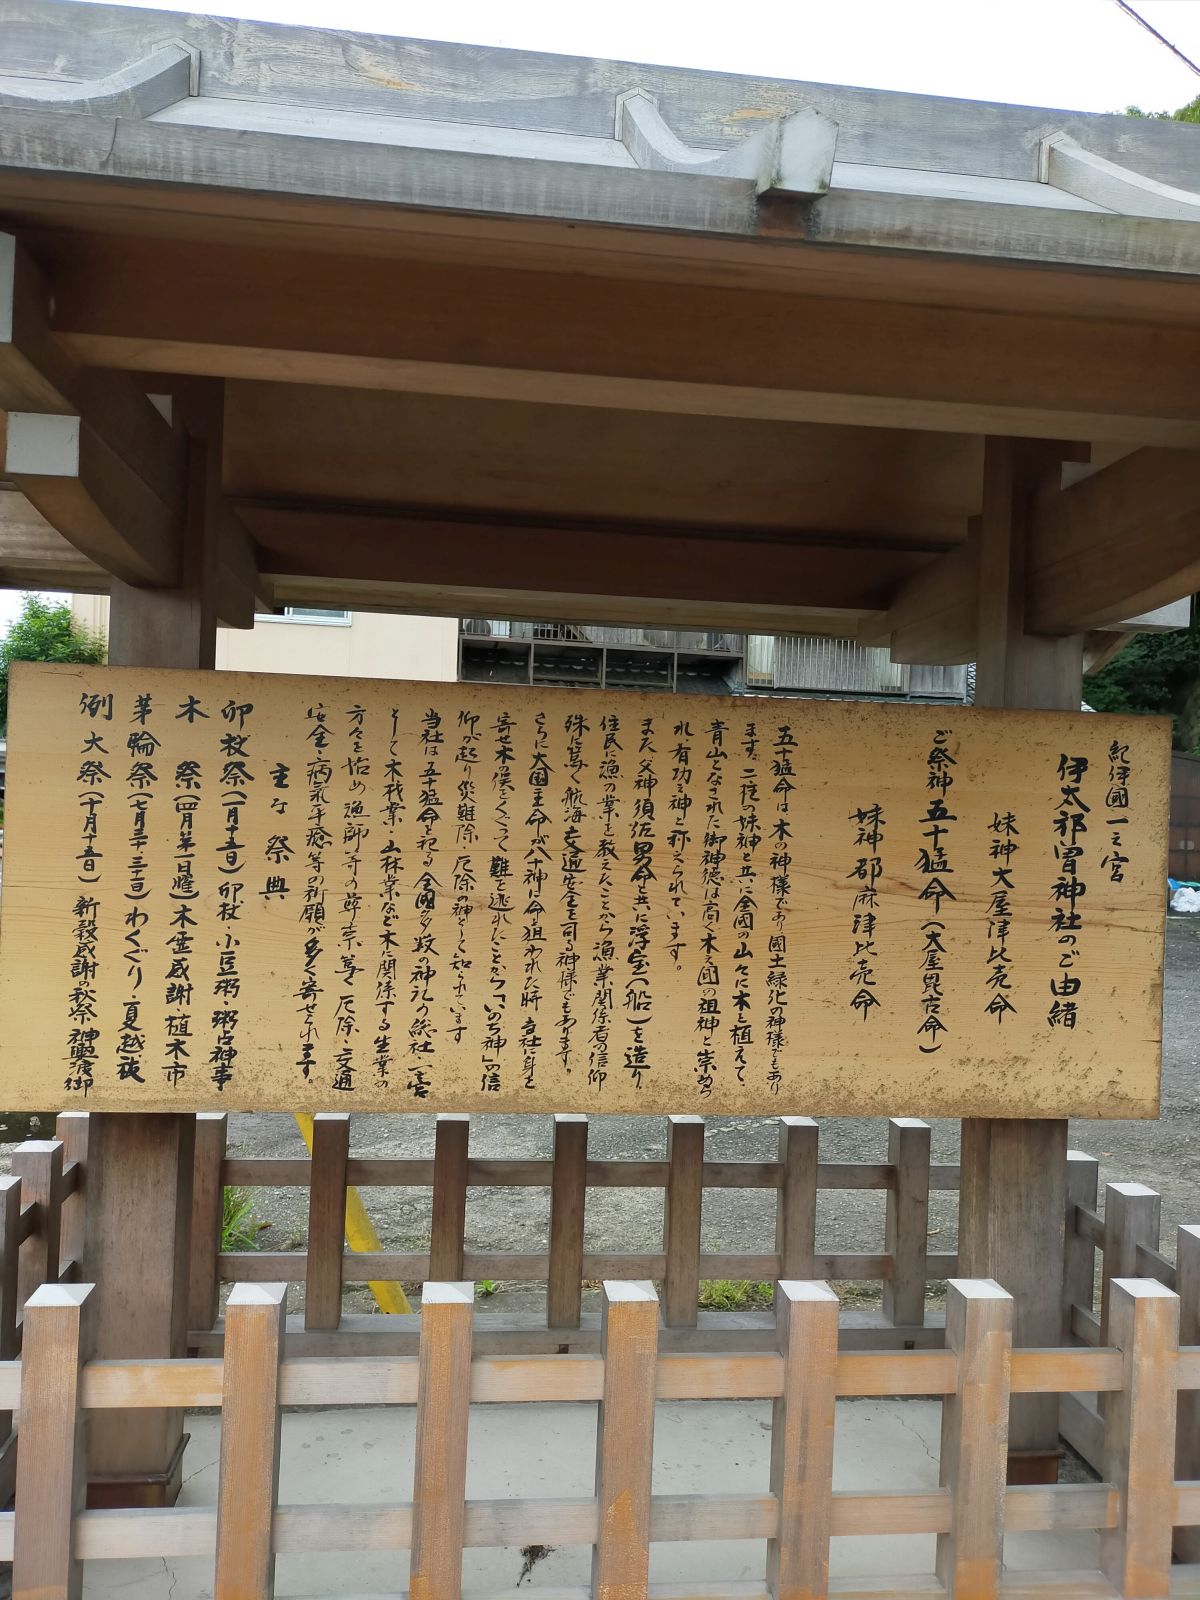 紀伊國一之宮
伊太祁曽神社のご由緒
妹神 大屋津比売命
ご祭神 五十猛命(大屋毘古命)
妹神 都麻津比売命
五十猛命は木の神様であり國土緑化の神様でもあり
ます。二柱の妹神と共に全國の山々に木を植えて、
青山となされた御神徳は高く木之國の祖神と崇められ
れ有功之神と称えられています。
また父神須佐男命と共に浮宝(船)を造り、
住民に漁の業を教えたことから漁業関係者の信仰
殊に篤く航海交通安全を司る神様でもあります。
さらに大國主命が八十神に命を狙われた時当社に身を
寄せ木俣をくぐって難を逃れたことから「いのち神」の信
仰が起り災難除・厄除の神として知られています
当社は五十猛命を祀る全國多数の神社の総社(一宮)
として木材業・山林業など木に関係する生業の
方々を始め漁師等の尊崇篤く厄除・交通
安全・病気平癒等の祈願が多く寄せられます。
主な祭典
卯杖祭(一月十五日)卯杖・小豆粥・粥占神事
木祭(四月第一日曜)木霊感謝植木市
茅輪祭(七月三十・三十一日)わくぐり・夏越祓
例大祭(十月十五日)新穀感謝の秋祭 神輿渡御